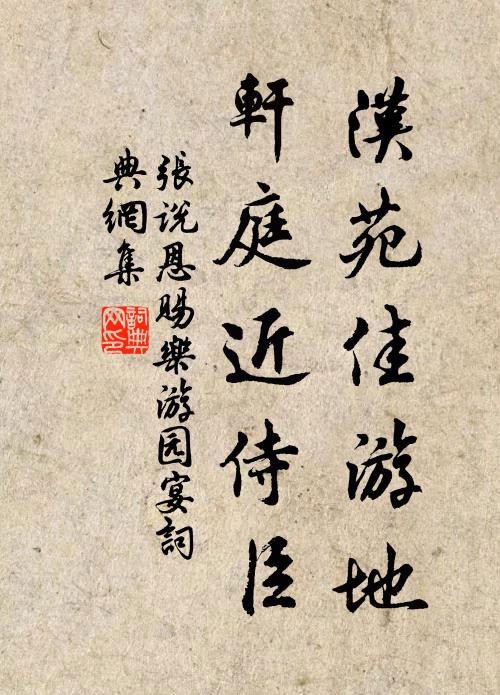 漢苑佳游地
軒庭近侍臣
張説恩賜樂游园宴詞
典網集
詞典
网印